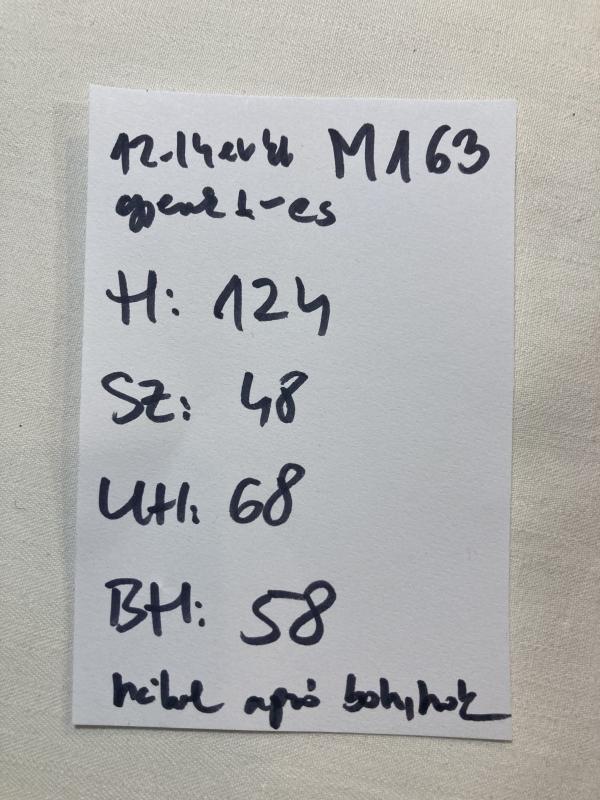 12-14 év M163
gyerek L-es
H: 124
SZ: 48
UH: 68
BH: 58
hátul apró bolyhok